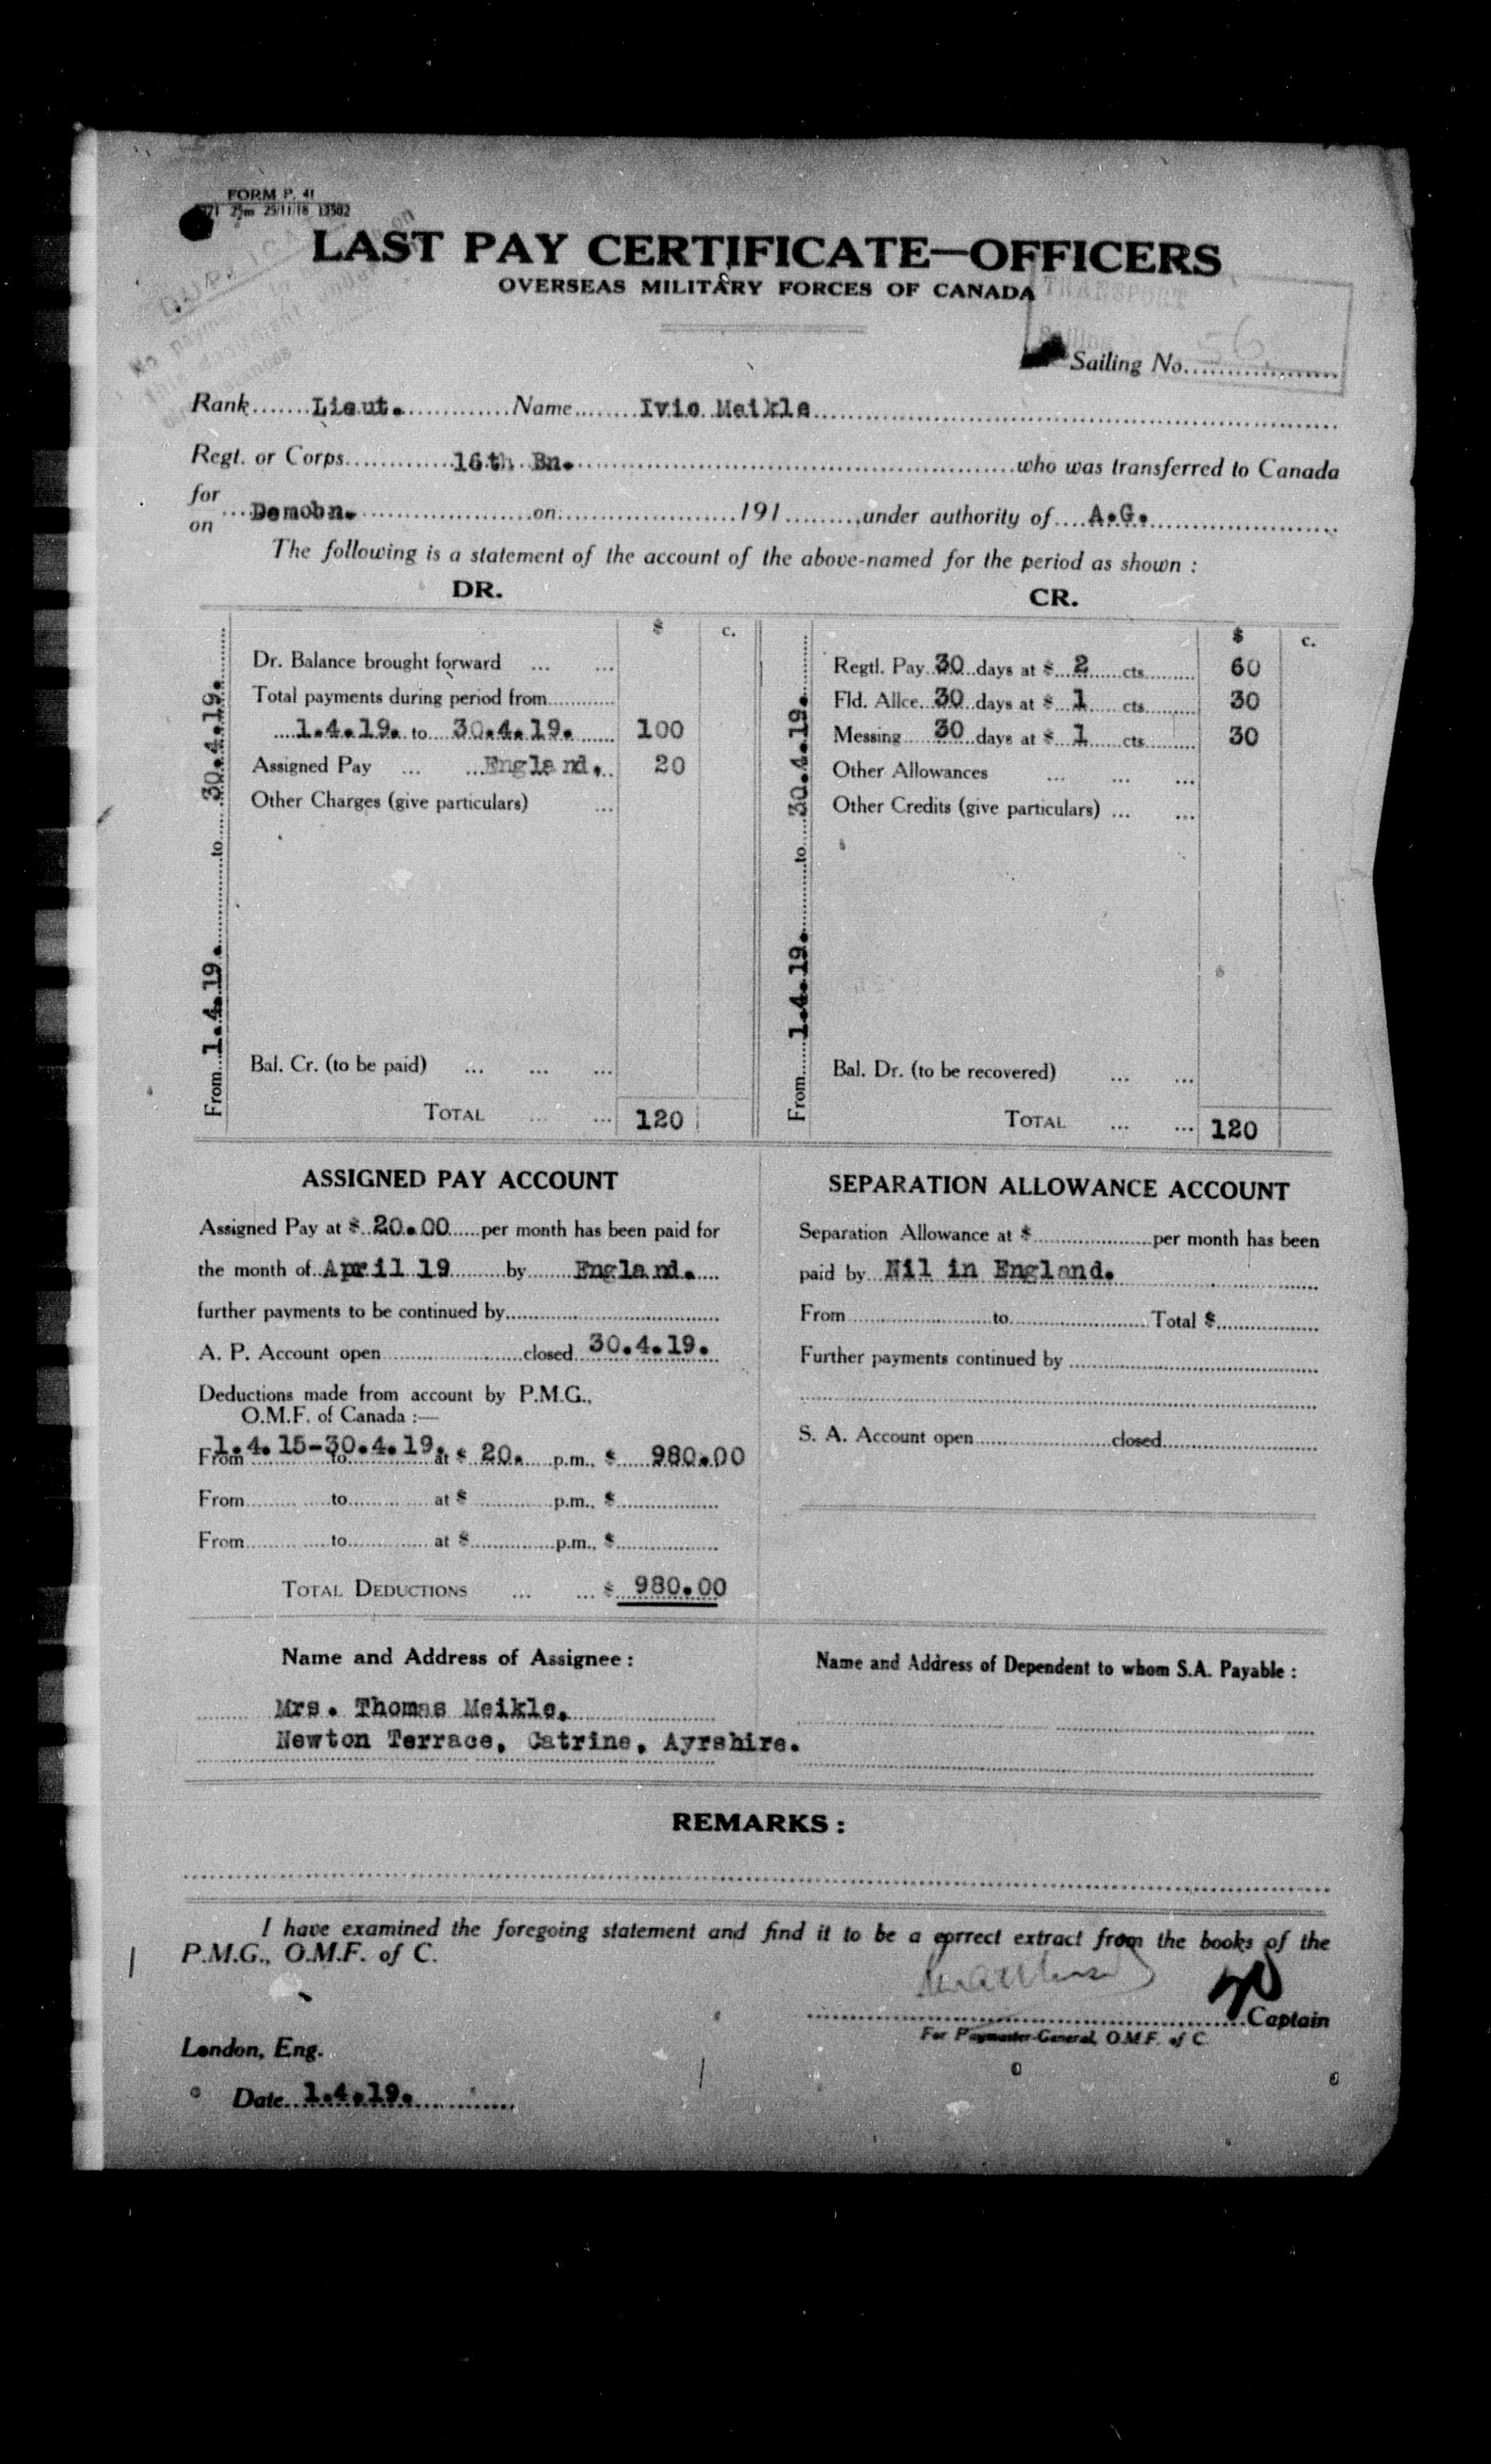 FORM P. 41
25m 25/11/18 13502
DUPLICATE
No payment to
this document under
LAST PAY CERTIFICATE—OFFICERS
OVERSEAS MILITARY FORCES OF CANADA
TRANSPORT
Sailing No. 56
Rank Lieut. Name Ivie Meikle
Regt. or Corps 16th Bn. who was transferred to Canada
for
on Demobn. on 191 under authority of A.G.
The following is a statement of the account of the above-named for the period as shown :
DR.
From 1.4.19. to 30.4.19.
$ c.
Dr. Balance brought forward ... ...
Total payments during period from
1.4.19. to 30.4.19. 100
Assigned Pay ... ... England. 20
Other Charges (give particulars) ...
Bal. Cr. (to be paid) ... ... ...
TOTAL ... ... 120
CR.
From 1.4.19. to 30.4.19.
$ c.
Regtl. Pay 30 days at $ 2 cts. 60
Fld. Allce. 30 days at $ 1 cts. 30
Messing 30 days at $ 1 cts. 30
Other Allowances ... ... ...
Other Credits (give particulars) ... ...
Bal. Dr. (to be recovered) ... ...
TOTAL ... ... 120
ASSIGNED PAY ACCOUNT
Assigned Pay at $ 20.00 per month has been paid for
the month of April 19 by England.
further payments to be continued by
A. P. Account open closed 30.4.19.
Deductions made from account by P.M.G.,
O.M.F. of Canada :—
From 1.4.15-30.4.19. to at $ 20. p.m., $ 980.00
From to at $ p.m., $
From to at $ p.m., $
TOTAL DEDUCTIONS ... ... $ 980.00
SEPARATION ALLOWANCE ACCOUNT
Separation Allowance at $ per month has been
paid by Nil in England.
From to Total $
Further payments continued by
S. A. Account open closed
Name and Address of Assignee :
Mrs. Thomas Meikle.
Newton Terrace, Catrine, Ayrshire.
Name and Address of Dependent to whom S.A. Payable :
REMARKS :
I have examined the foregoing statement and find it to be a correct extract from the books of the
P.M.G., O.M.F. of C.
Captain
For Paymaster-General, O.M.F. of C.
London, Eng.
Date 1.4.19.